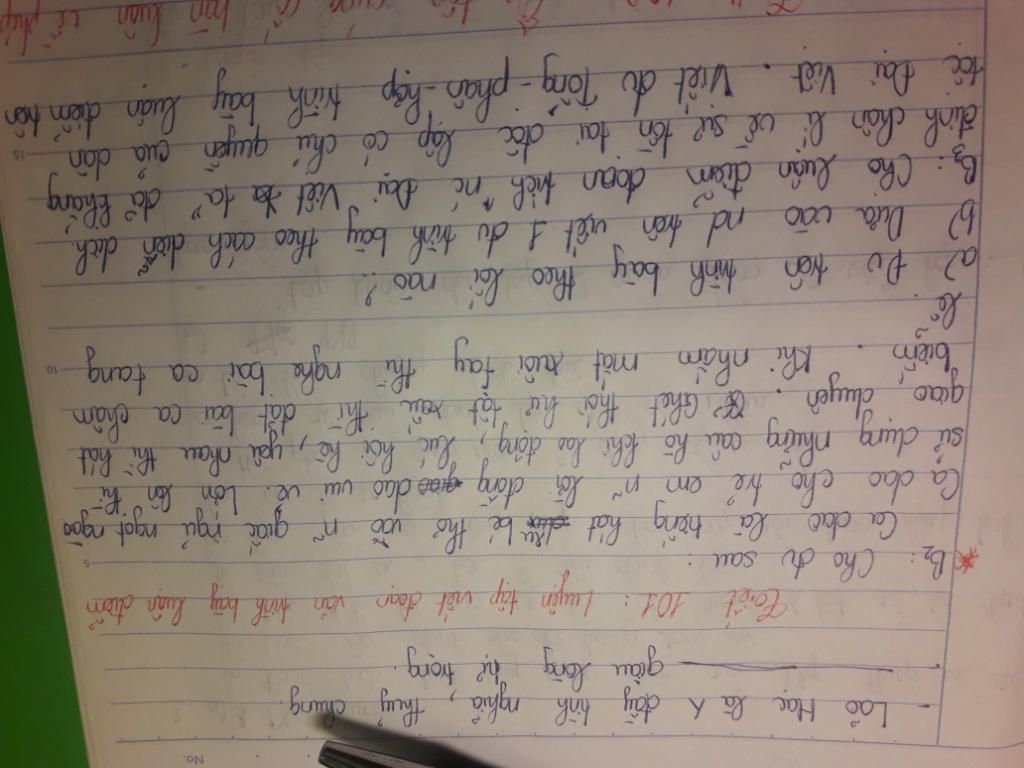 No.
- Lão Hạc là λ đầy tình nghĩa, thủy chung.
- giàu lòng tự trọng.
Tiết 101: Luyện tập viết đoạn văn trình bày luận điểm
B2: Cho đv sau:
Ca dao là tiếng hát bé thơ vào n~ giấc ngủ ngọt ngào
Ca dao cho trẻ em n~ lời đồng dao vui vẻ. Lớn lên thì
sử dụng những câu hò khi lao động, lúc hội hè, yêu nhau thì hát
giao duyên. Ghét thói hư tật xấu thì đặt bài ca châm
biếm. Khi nhắm mắt xuôi tay thì nghe bài ca tang
lễ.
a) Đv trên trình bày theo lối nào?
b) Dựa vào nd trên viết 1 đv trình bày theo cách diễn dịch.
B3: Cho luận điểm đoạn trích "nc Đại Việt ta" đã khẳng
định chân lí về sự tồn tại độc lập có chủ quyền của dân
tộc Đại Việt. Viết đv Tổng-phân-hợp trình bày luận điểm trên